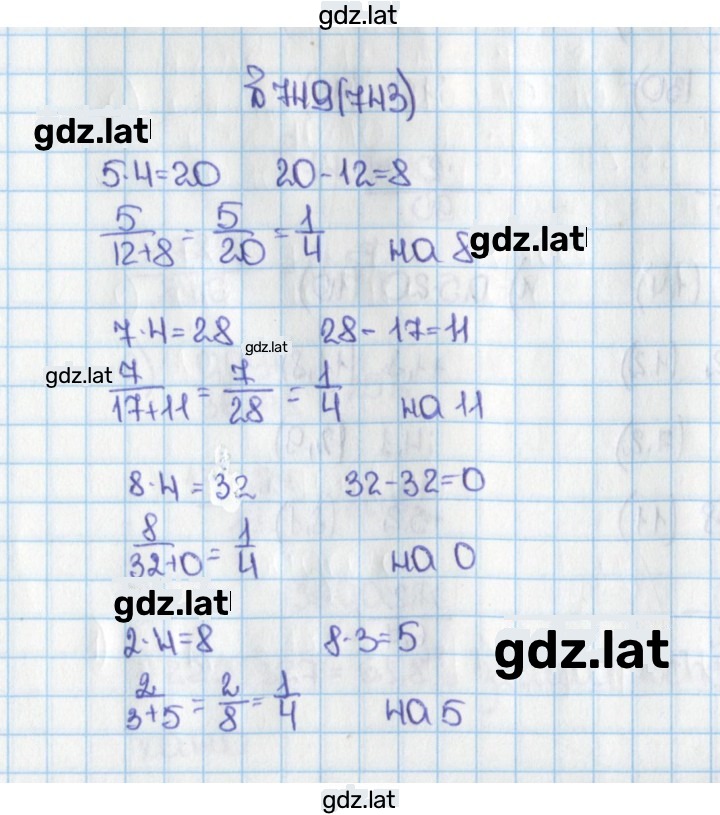 gdz.lat
№ 749(743)
gdz.lat
5·4=20 20-12=8
5/(12+8) = 5/20 = 1/4 на 8 gdz.lat
7·4=28 28-17=11
gdz.lat
gdz.lat 7/(17+11) = 7/28 = 1/4 на 11
8·4=32 32-32=0
8/(32+0) = 1/4 на 0
gdz.lat
2·4=8 8·3=5
gdz.lat
2/(3+5) = 2/8 = 1/4 на 5
gdz.lat